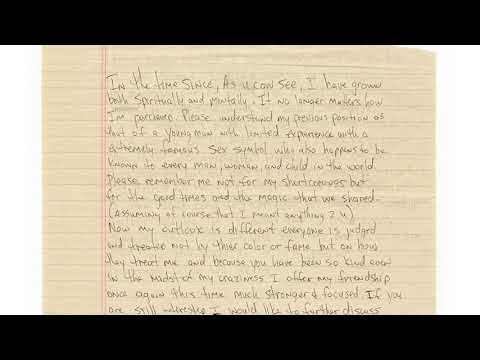 In the time since, As u can see, I have grown
both spiritually and mentally. It no longer matters how
I'm percieved. Please understand my previous position as
that of a young man with limited experience with a
extremely famous sex symbol who also happens to be
known to every man, woman, and child in the world.
Please remember me not for my shortcomings but
for the good times and this magic that we shared.
(Assuming of course that I meant anything 2 u)
Now my outlook is different everyone is judged
and treated not by thier color or fame but on how
they treat me and because you have been so kind even
in the midst of my craziness I offer my friendship
once again this time much stronger & focused If you
are still interested I would like to further discuss